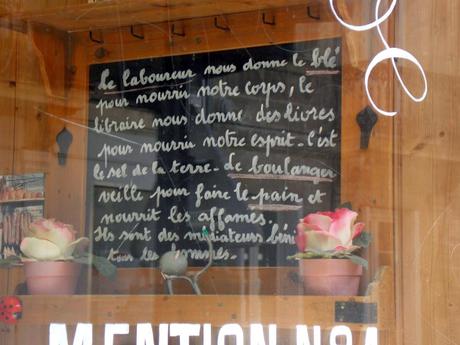 Le laboureur nous donne le blé
pour nourrir notre corps, le
libraire nous donne des livres
pour nourrir notre esprit. c'est
le sel de la terre. Le boulanger
veille pour faire le pain et
nourrit les affamés.
Ils sont des médiateurs
tous les hommes.
MENTION N°1